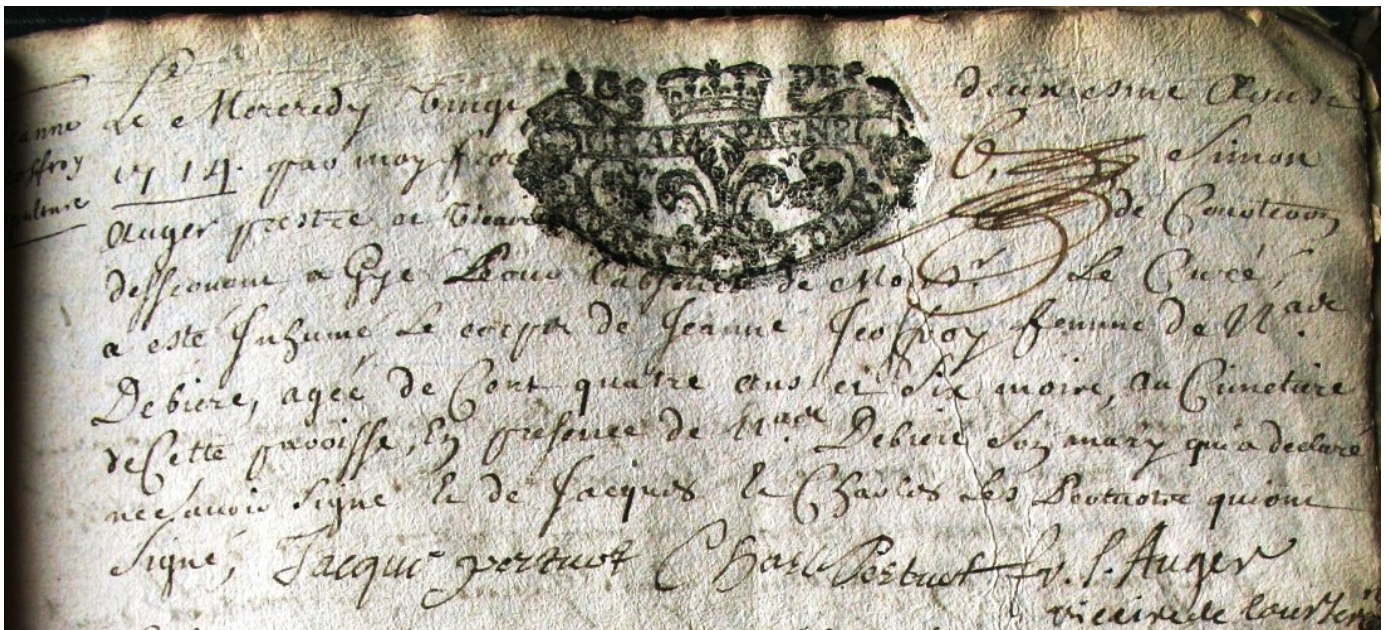 Jeanne
Jeoffroy
Le Mercredy Vingt deuxiesme Aoust
1714. par moy François Simon
Auger prestre et Vicaire de Courteron
desservant a Gyé Pour l'absence de Mons.r Le Curé,
a esté Inhumé Le corps de Jeanne Jeoffroy femme de
Debiere, agée de Cent quatre ans et Six mois, au Cimetiere
de Cette paroisse, En presence de Debiere Son mary qui a declaré
ne Savoir Signé Et de Jacques Et Charles Les Pertuots qui ont
Signé, Jacque pertuot Charle Pertuot fr. S. Auger
vicaire de Courteron
GS DES
CHAMPAGNE